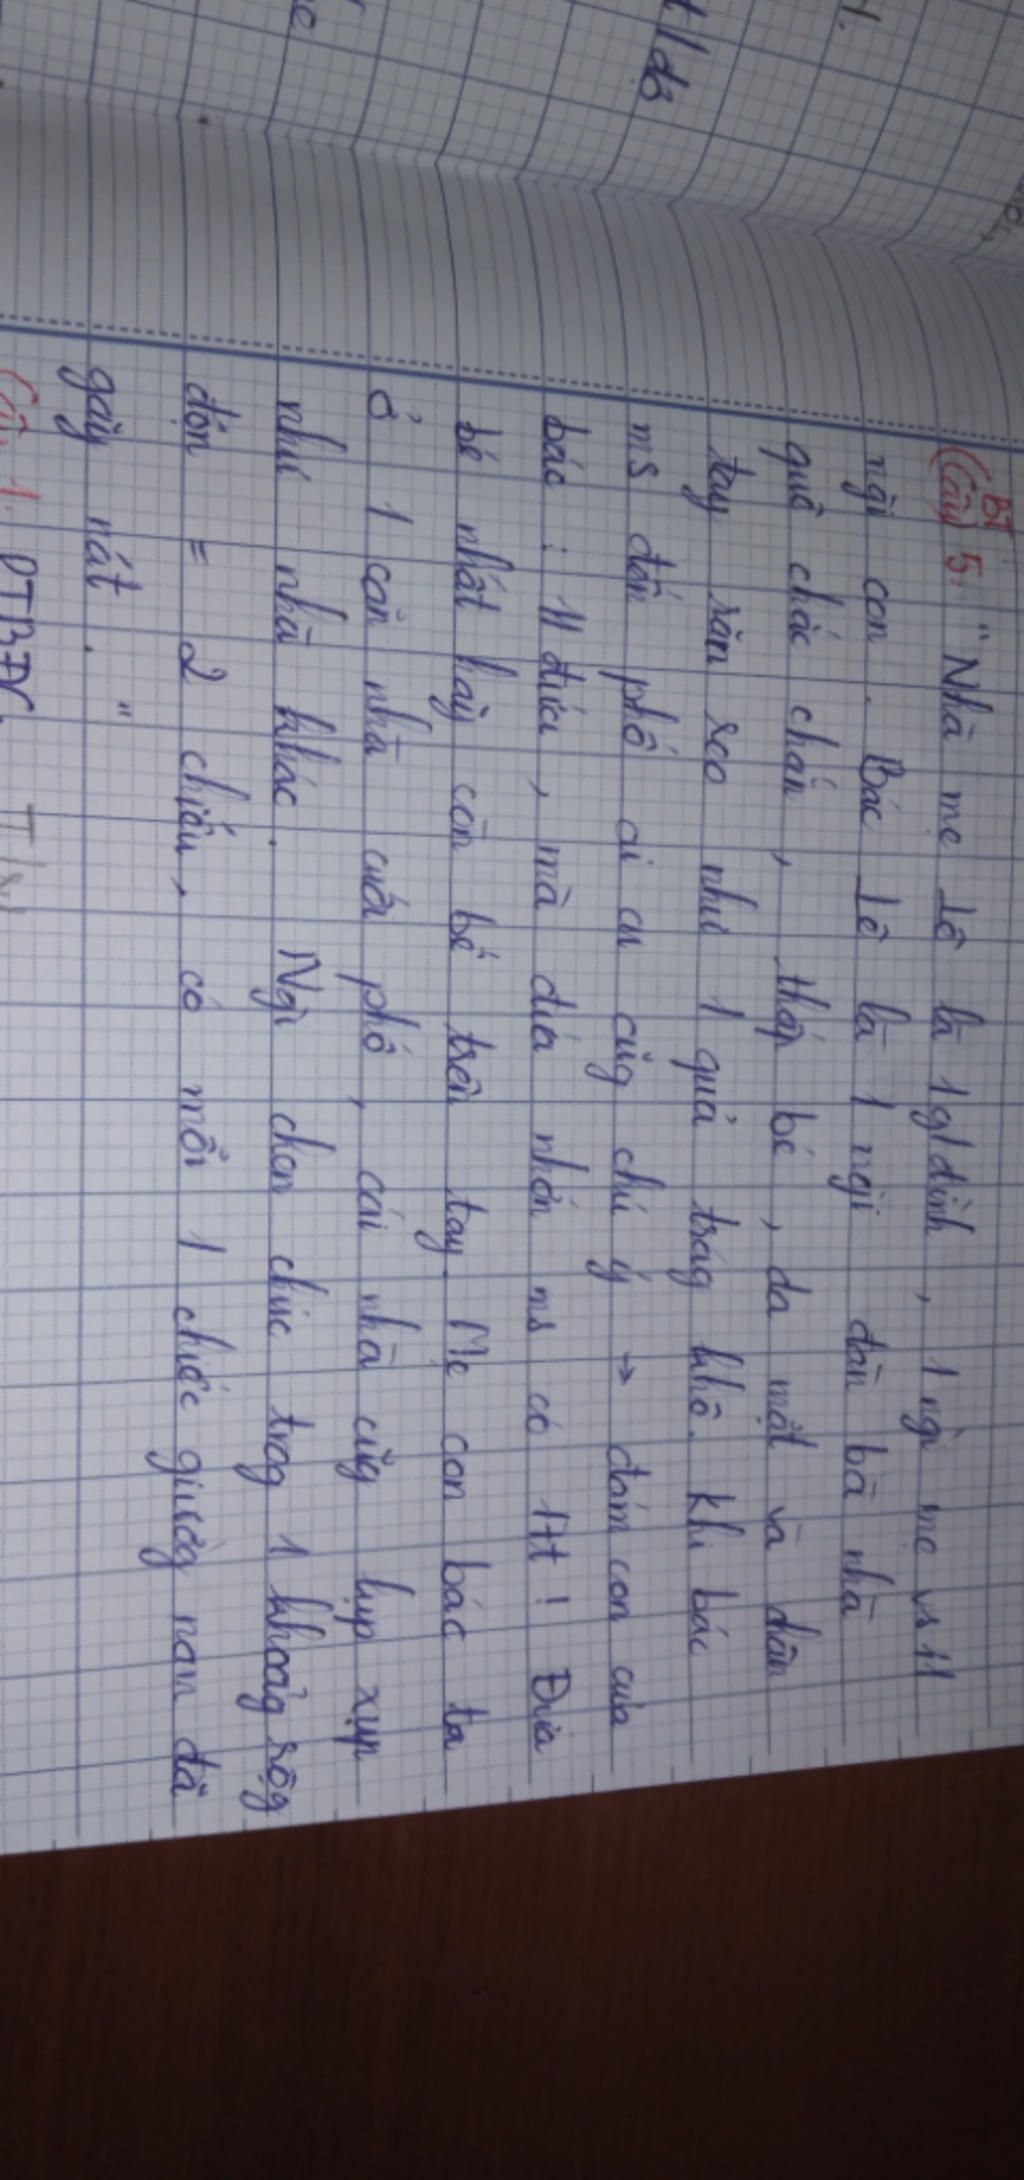 t/dб
BT
(Câu) 5. "Nhà mẹ Lê là 1 g/đình, 1 ngì mẹ vs 11
ngì con. Bác Lê là 1 ngì đàn bà nhà
quê chắc chắn, thấp bé, da mặt và chân
tay răn reo như 1 quả trág khô. khi bác
ms đến phố ai cx cũg chú ý → đám con của
bác : 11 đứa, mà đứa nhớn ms có 17t! Đứa
bé nhất hãy còn bế trên tay. Mẹ con bác ta
ở 1 căn nhà cuối phố, cái nhà cũg lụp xụp
như nhà khác. Ngì chen chúc trog 1 khoảg rộg
độ = 2 chiếu, có mỗi 1 chiếc giườg nan đã
gãy nát. "
Câu 1. PTBĐC